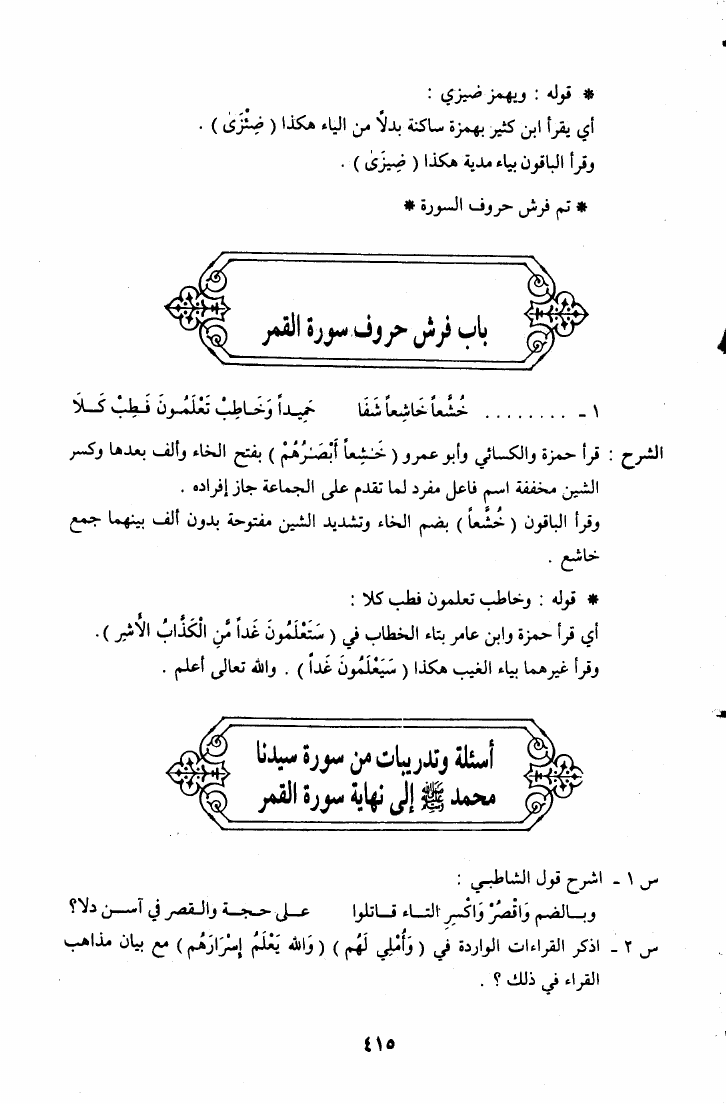 * قوله : ويهمز ضيزي :
أي يقرأ ابن كثير بهمزة ساكنة بدلاً من الياء هكذا ( ضِئْزَىٰ ) .
وقرأ الباقون بياء مدية هكذا ( ضِيزَىٰ ) .
* تم فرش حروف السورة *
باب فرش حروف سورة القمر
١ - ........ خُشَّعاً خَاشِعاً شَفَا حَمِيداً وَخَاطِبْ تَعْلَمُونَ فَطِبْ كَلَا
الشرح : قرأ حمزة والكسائي وأبو عمرو ( خَـٰشِعاً أَبْصَـٰرُهُمْ ) بفتح الخاء وألف بعدها وكسر
الشين مخففة اسم فاعل مفرد لما تقدم على الجماعة جاز إفراده .
وقرأ الباقون ( خُشَّعاً ) بضم الخاء وتشديد الشين مفتوحة بدون ألف بينهما جمع
خاشع .
* قوله : وخاطب تعلمون فطب كلا :
أي قرأ حمزة وابن عامر بتاء الخطاب في ( سَتَعْلَمُونَ غَداً مَّنِ الْكَذَّابُ الْأَشِرُ ) .
وقرأ غيرهما بياء الغيب هكذا ( سَيَعْلَمُونَ غَداً ) . والله تعالى أعلم .
أسئلة وتدريبات من سورة سيدنا
محمد ﷺ إلى نهاية سورة القمر
س ١ - اشرح قول الشاطبي :
وبالضم وَاقْصُرْ وَاكْسِرِ التاء قاتلوا على حجة والقصر في آسن دلا؟
س ٢ - اذكر القراءات الواردة في ( وَأُمْلِي لَهُم ) ( وَالله يَعْلَمُ إِسْرَارَهُم ) مع بيان مذاهب
القراء في ذلك ؟ .
٤١٥